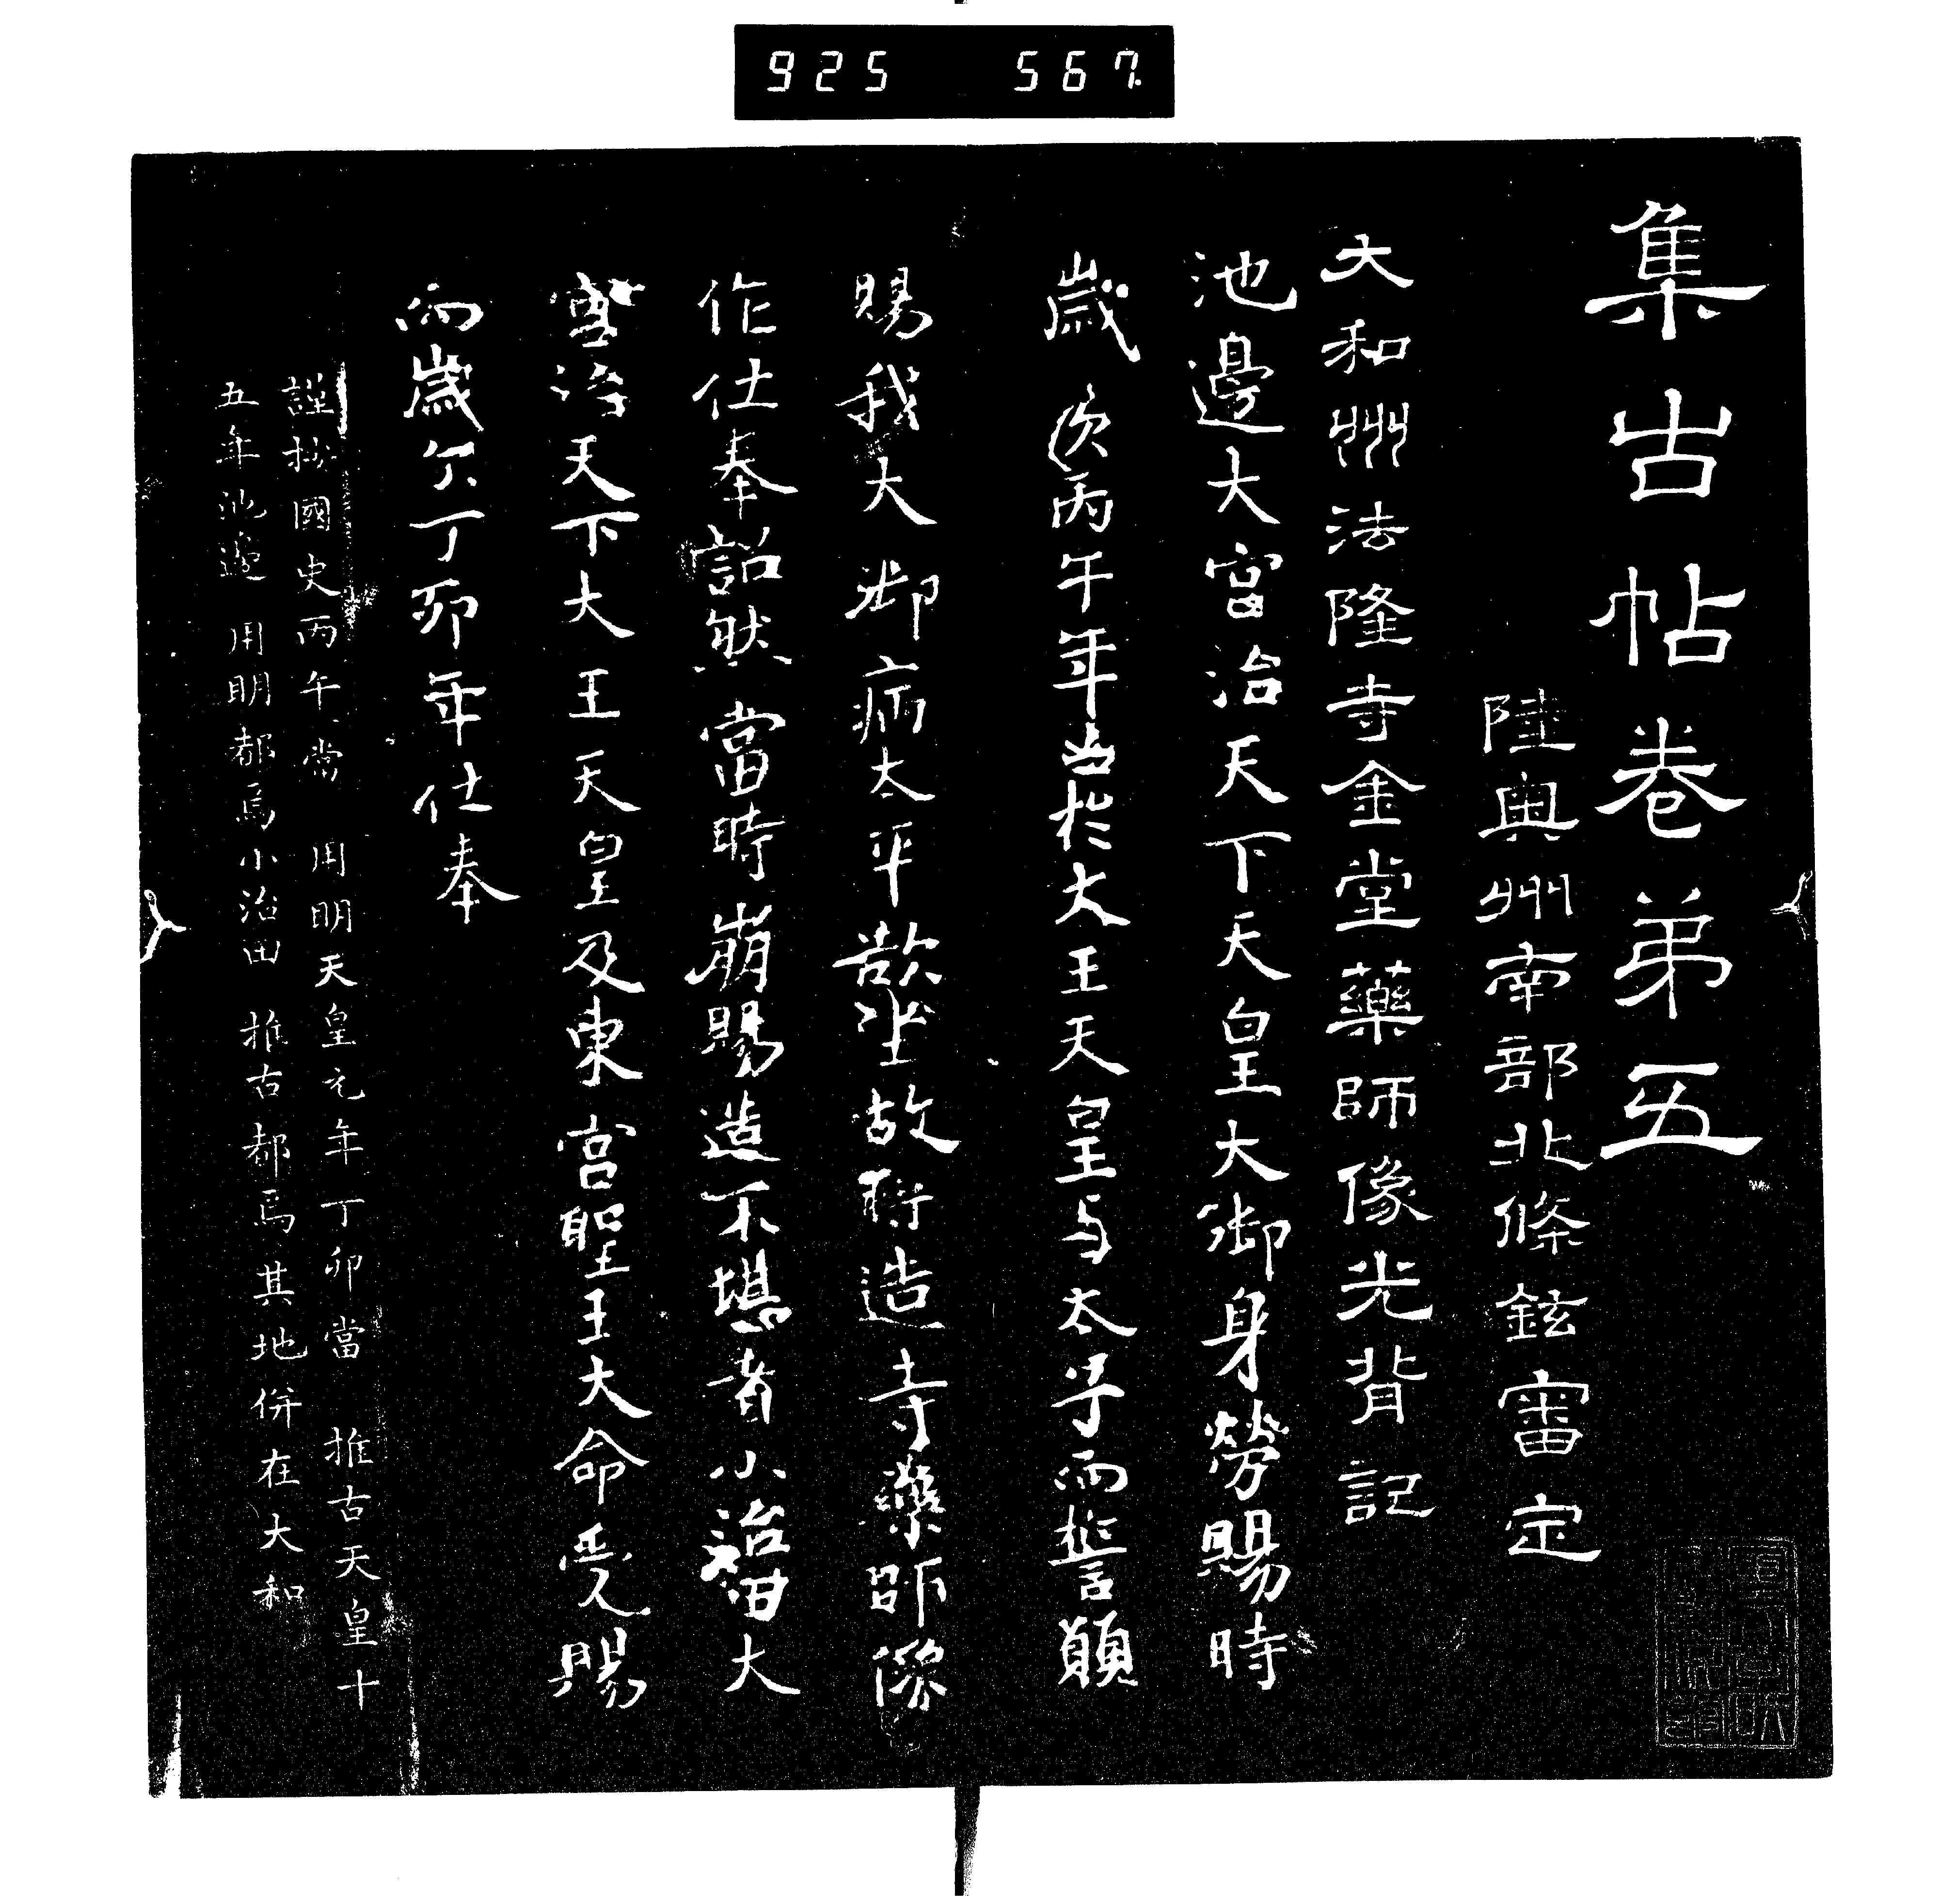 925 567
集古帖卷弟五
陸奥州南部北條鉉審定
大和州法隆寺金堂藥師像光背記
池邊大宮治天下天皇大御身勞賜時
歳次丙午年召於大王天皇与太子而誓願
賜我大御病太平欲坐故將造寺藥師像
作仕奉詔然當時崩賜造不堪者小治田大
宮治天下大王天皇及東宮聖王大命受賜
而歳次丁卯年仕奉
謹按國史丙午當 用明天皇元年丁卯當 推古天皇十
五年池邊 用明都焉小治田 推古都焉其地併在大和